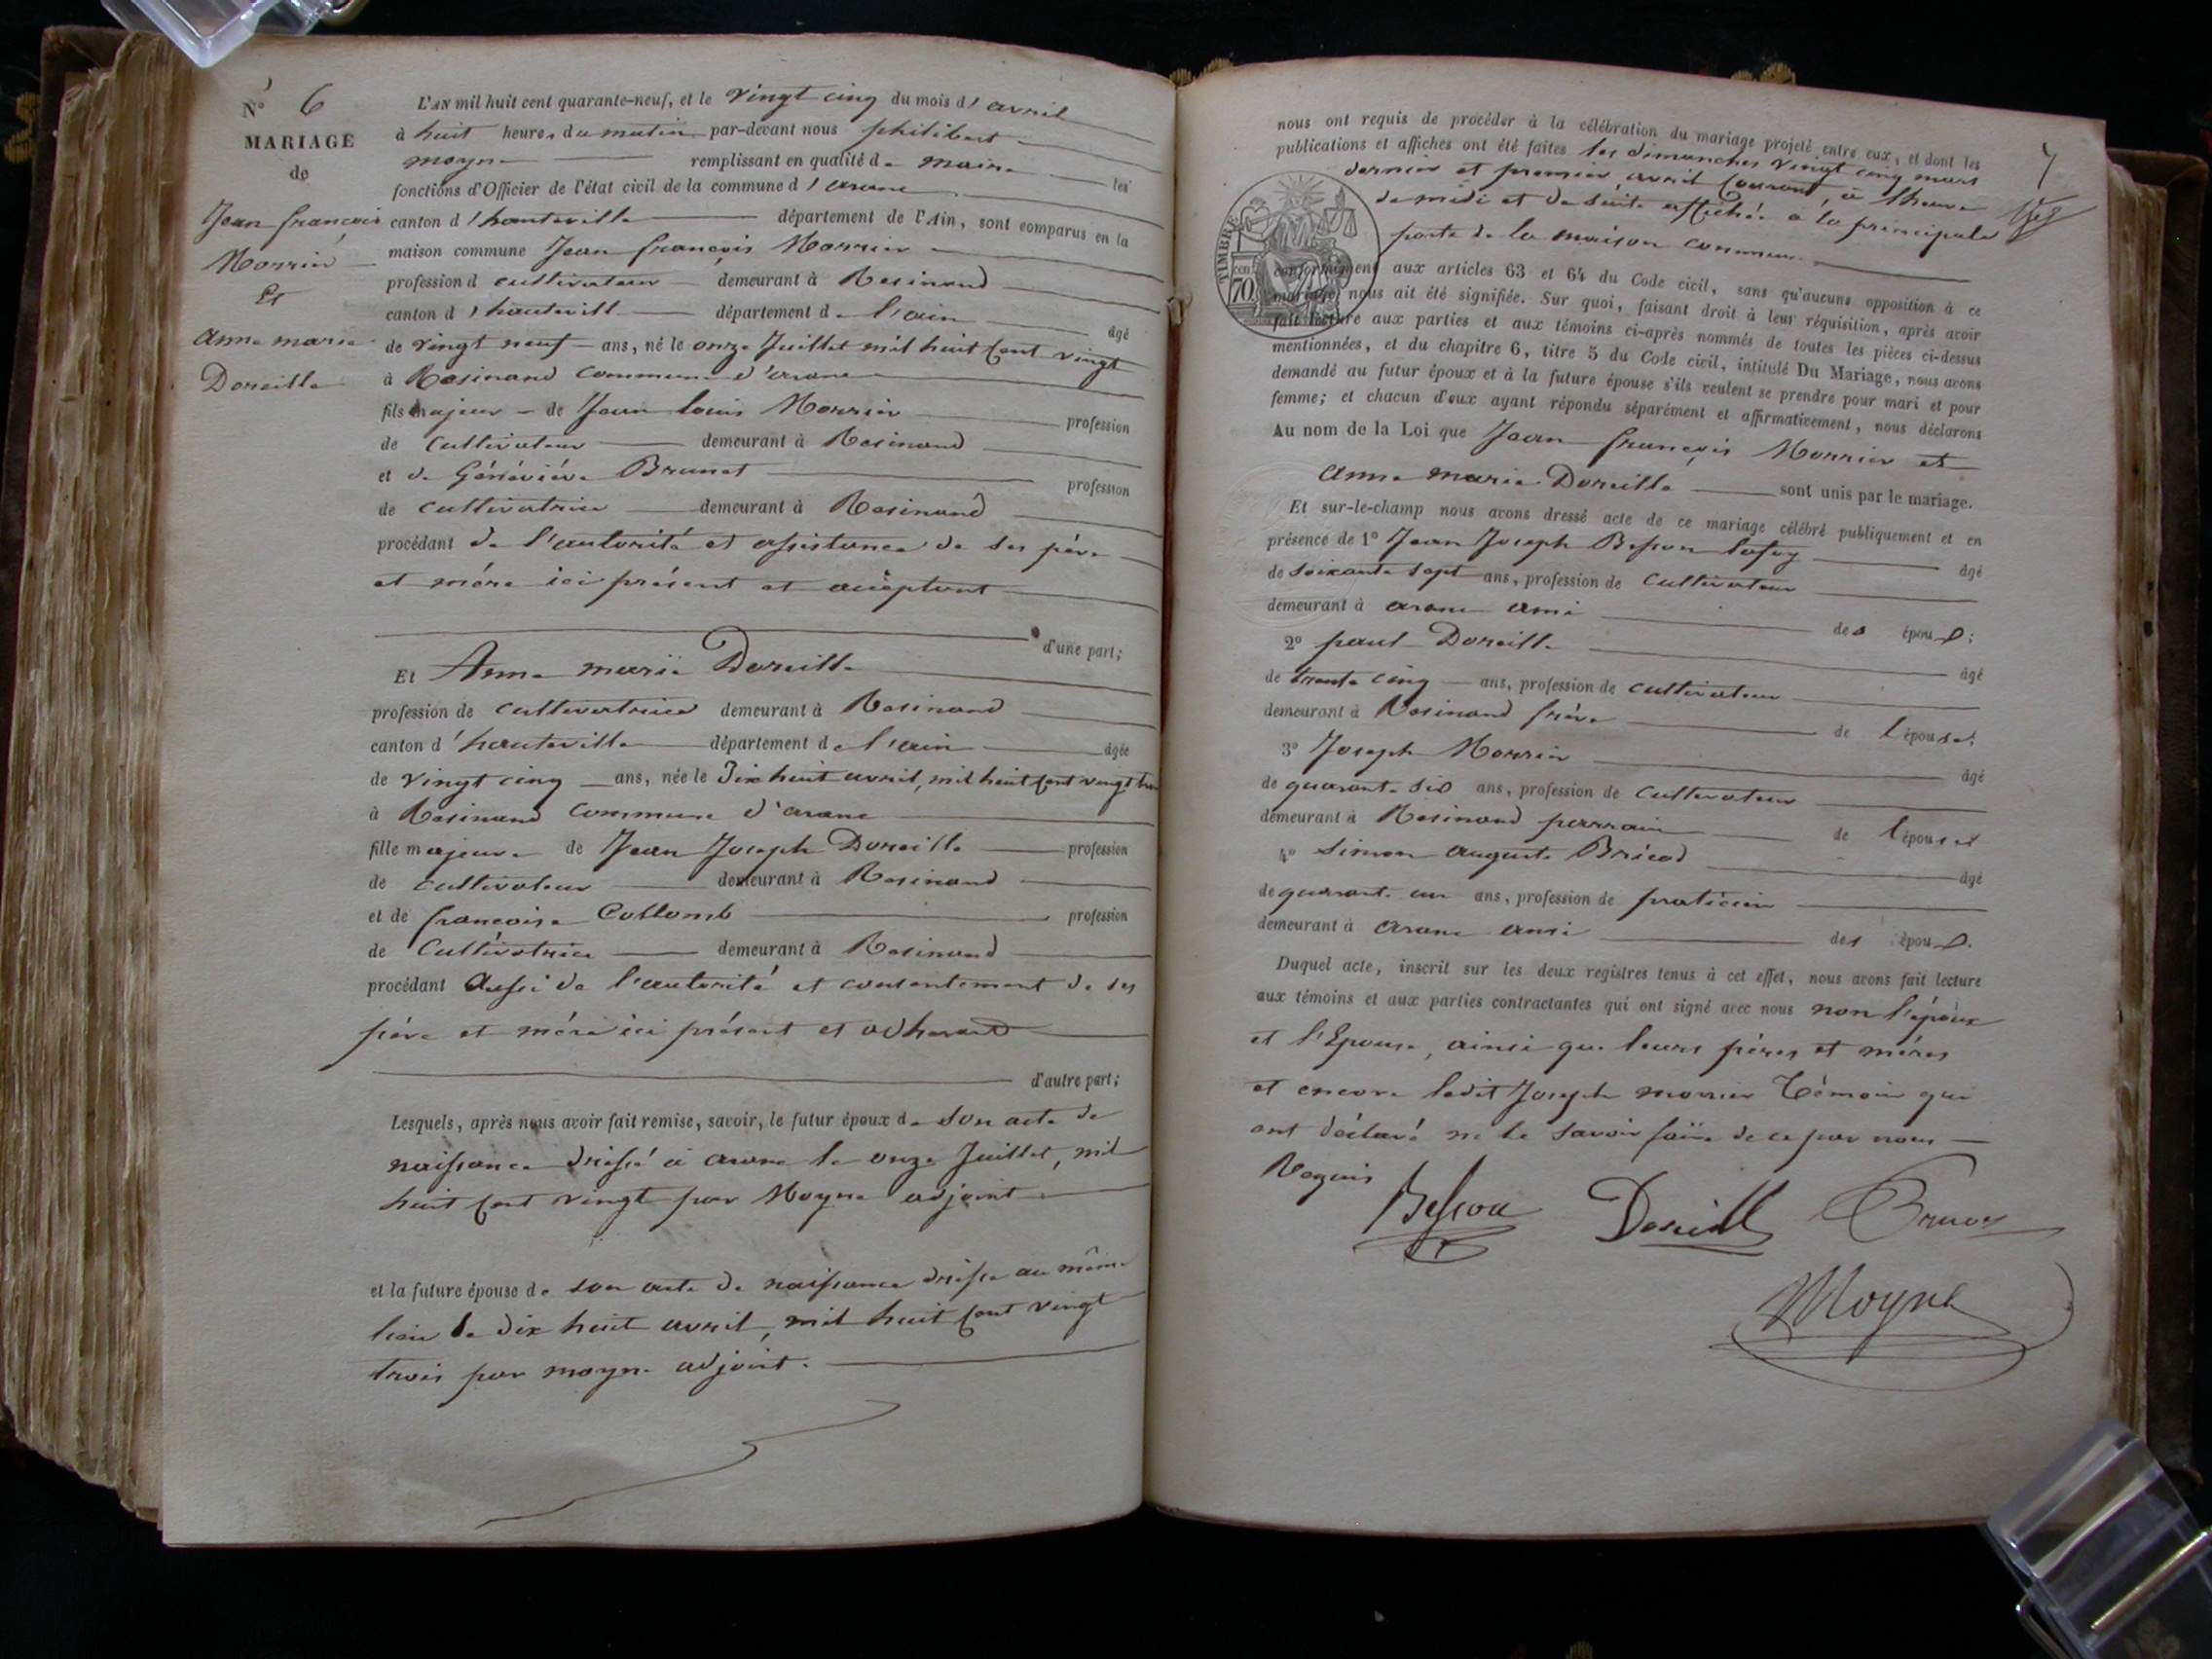 N° 6
MARIAGE
de
Jean françois
Morrier
Et
Anne marie
Doreille
L'AN mil huit cent quarante-neuf, et le vingt cinq du mois d'avril
à huit heures du matin par-devant nous philibert
moyne remplissant en qualité de maire les
fonctions d'Officier de l'état civil de la commune d'arane
canton d'hauteville département de l'Ain, sont comparus en la
maison commune Jean françois Morrier
profession de cultivateur demeurant à Resinand
canton d'hauteville département de l'ain âgé
de vingt neuf ans, né le onze Juillet mil huit Cent vingt
à Resinand commune d'arane
fils majeur de Jean louis Morrier profession
de Cultivateur demeurant à Resinand
et de Généviéve Brunet profession
de cultivatrice demeurant à Resinand
procédant de l'autorité et assistance de ses père
et mère ici présent et acceptant
d'une part;
Et Anne marie Doreille
profession de cultivatrice demeurant à Resinand
canton d'hauteville département de l'ain âgée
de vingt cinq ans, née le Dix huit avril, mil huit Cent vingt trois
à Resinand commune d'arane
fille majeure de Jean Joseph Doreille profession
de cultivateur demeurant à Resinand
et de françoise Collomb profession
de Cultivatrice demeurant à Resinand
procédant aussi de l'autorité et consentement de ses
père et mère ici présent et adherant
d'autre part;
Lesquels, après nous avoir fait remise, savoir, le futur époux de son acte de
naissance dressé à arane le onze Juillet, mil
huit Cent vingt par Moyne adjoint
et la future épouse de son acte de naissance dressé au même
lieu le dix huit avril, mil huit Cent vingt
trois par moyne adjoint.
7
nous ont requis de procéder à la célébration du mariage projeté entre eux, et dont les
publications et affiches ont été faites les dimanches vingt cinq mars
dernier et premier avril Courant, à l'heure
de midi et de suite affichée a la principale
porte de la maison commune
TIMBRE
70
conformément aux articles 63 et 64 du Code civil, sans qu'aucune opposition à ce
mariage nous ait été signifiée. Sur quoi, faisant droit à leur réquisition, après avoir
fait lecture aux parties et aux témoins ci-après nommés de toutes les pièces ci-dessus
mentionnées, et du chapitre 6, titre 5 du Code civil, intitulé Du Mariage, nous avons
demandé au futur époux et à la future épouse s'ils veulent se prendre pour mari et pour
femme; et chacun d'eux ayant répondu séparément et affirmativement, nous déclarons
Au nom de la Loi que Jean françois Morrier et
Anne marie Doreille sont unis par le mariage.
Et sur-le-champ nous avons dressé acte de ce mariage célébré publiquement et en
présence de 1° Jean Joseph Besson âgé
de soixante sept ans, profession de Cultivateur
demeurant à arane ami des époux;
2° paul Doreille âgé
de trente cinq ans, profession de cultivateur
demeurant à Resinand frère de l'épouse;
3° Joseph Morrier âgé
de quarante six ans, profession de Cultivateur
demeurant à Resinand parrain de l'épouse
4° Simon auguste âgé
de quarante un ans, profession de praticien
demeurant à arane ami des époux.
Duquel acte, inscrit sur les deux registres tenus à cet effet, nous avons fait lecture
aux témoins et aux parties contractantes qui ont signé avec nous non l'époux
et l'Epouse, ainsi que leurs pères et mères
et encore ledit Joseph morrier Témoin qui
ont déclaré ne le savoir faire de ce par nous
Requis
Besson Doreille
Moyne